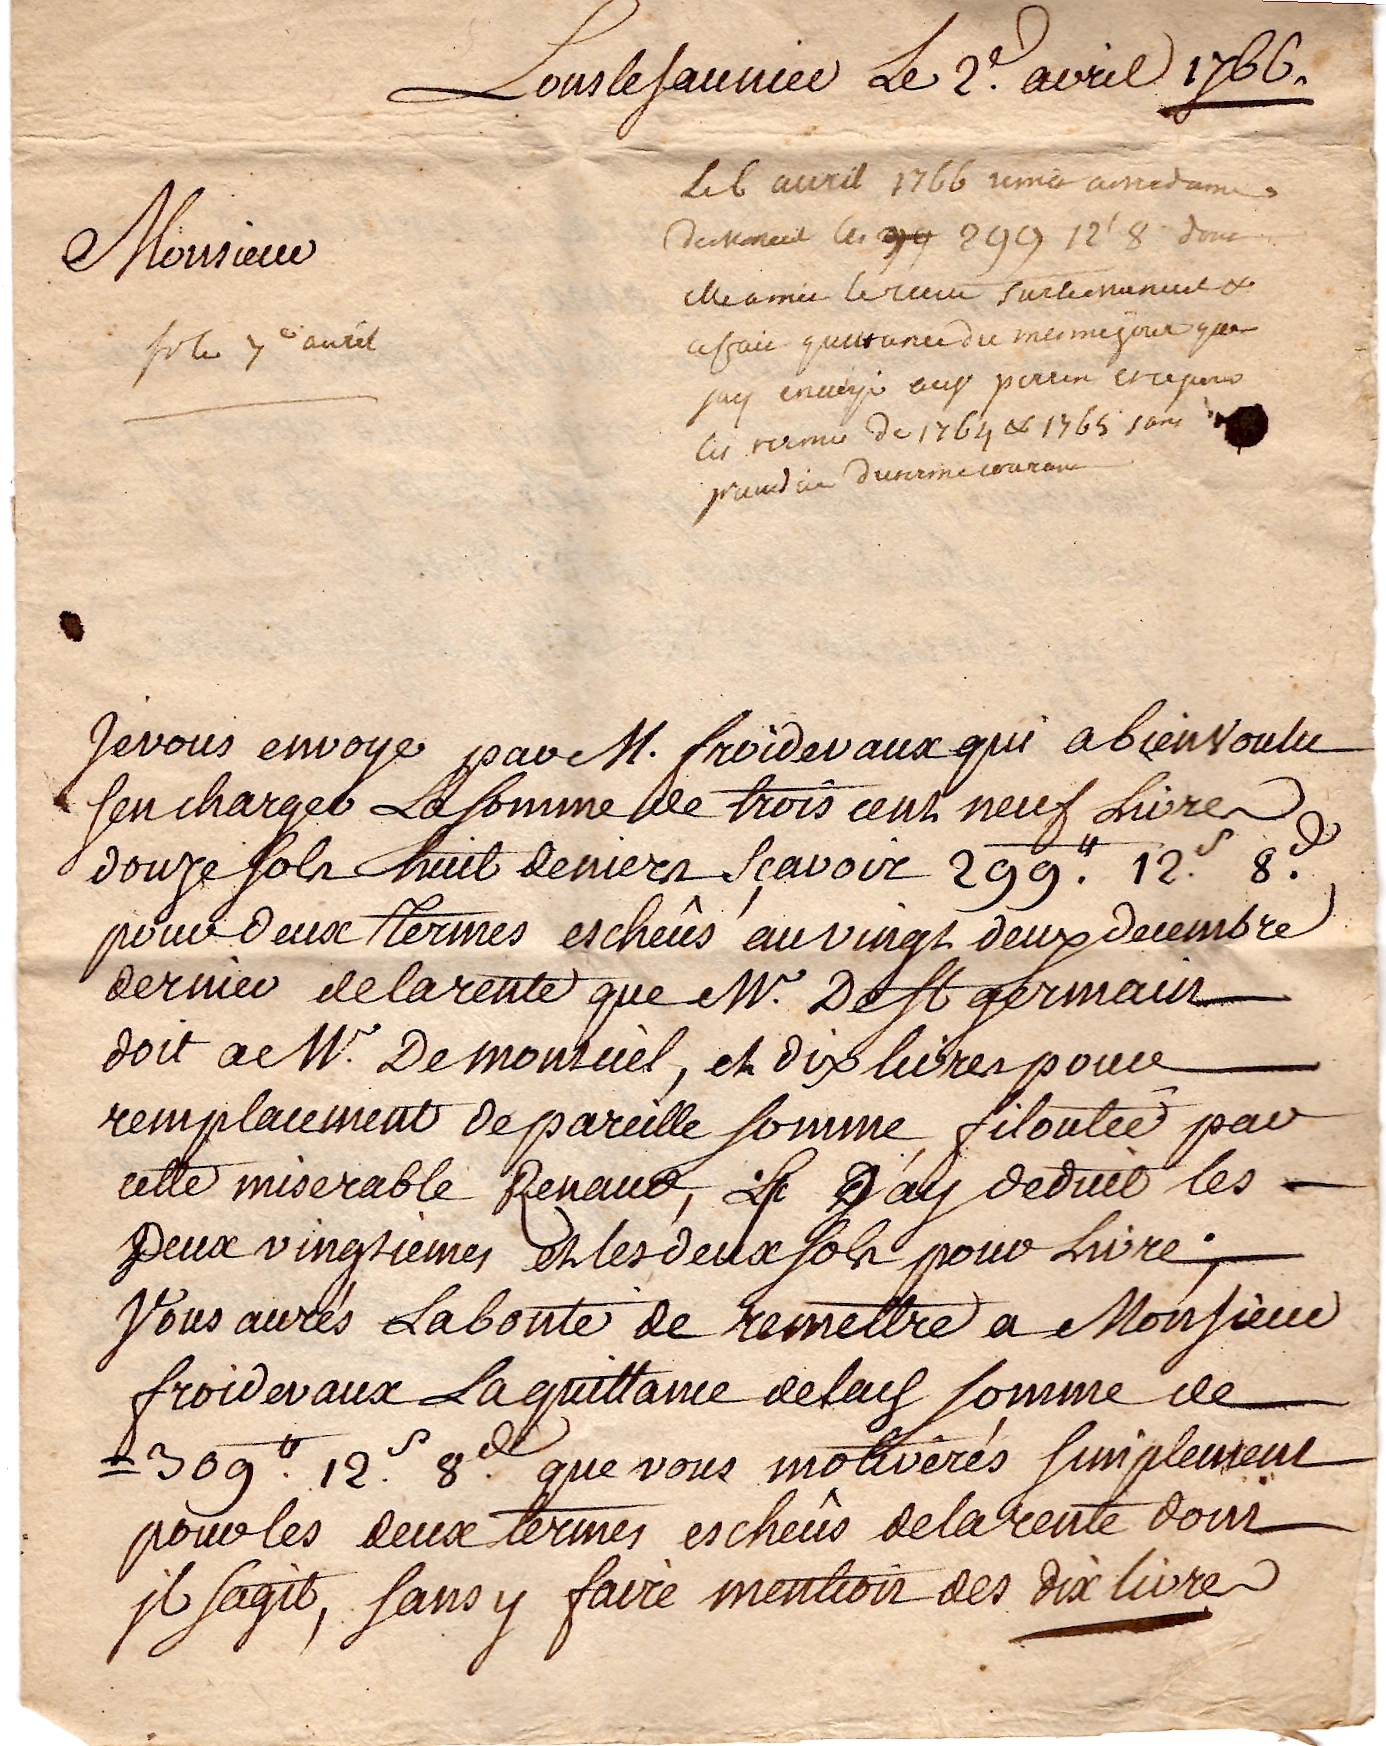 Lonslesaunier Le 2e. avril 1766.
Le 6 avril 1766 remis a madame
de les 299 12s 8 dont
elle a mis le receu sur le &
a fait quittance du mesme jour que
jay envoyé au sr perrin et ce pour
les termes de 1764 & 1765 sans
du terme courant
Monsieur
7e avril
Je vous envoye par M. froidevaux qui a bien voulu
sen charger La somme de trois cent neuf Livres
douze sols huit deniers sçavoir 299ᵗᵗ. 12.s 8.d
pour deux termes escheûs au vingt deux decembre
dernier de la rente que Mr. De st germain
doit a Mr. De montuiel, et dix livres pour
remplacement de pareille somme filoutée par
cette miserable Renaud, J'ay deduit les
Deux vingtiemes et les deux sols pour Livre;
Vous aurés La bonté de remettre a Monsieur
froidevaux La quittance de lad. somme de
= 309ᵗᵗ. 12.s 8.d que vous motiverés simplement
pour les deux termes escheûs de la rente dont
jl sagit, sans y faire mention des dix livres